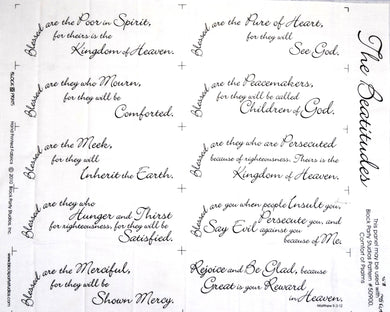 Blessed are the Poor in Spirit,
for theirs is the
Kingdom of Heaven.
Blessed are they who Mourn,
for they will be
Comforted.
Blessed are the Meek,
for they will
Inherit the Earth.
Blessed are they who
Hunger and Thirst
for righteousness, for they will be
Satisfied.
Blessed are the Merciful,
for they will be
Shown Mercy.
Blessed are the Pure of Heart,
for they will
See God.
Blessed are the Peacemakers,
for they will be called
Children of God.
Blessed are they who are Persecuted
because of righteousness. Theirs is the
Kingdom of Heaven.
Blessed are you when people Insult you,
Persecute you, and
Say Evil against you
because of Me.
Rejoice and Be Glad, because
Great is your Reward
in Heaven.
Matthew 5:3-12
The Beatitudes
This panel may be used with
Block Party Studios Pattern #50900,
Comfort of Psalms
Hand Printed Fabrics © 2012 Block Party Studios, Inc.
www.blockpartystudios.com